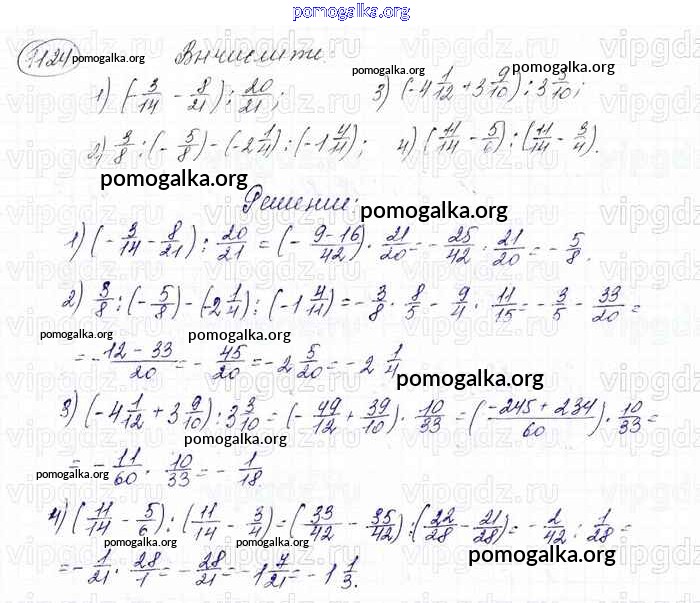 pomogalka.org
1124 pomogalka.org Вычислите: pomogalka.org
1) (-3/14 - 8/21) : 20/21; 3) (-4 1/12 + 3 9/10) : 3 3/10;
2) 3/8 : (-5/8) - (-2 1/4) : (-1 4/11); 4) (11/14 - 5/6) : (11/14 - 3/4).
pomogalka.org
Решение: pomogalka.org
1) (-3/14 - 8/21) : 20/21 = (-9-16/42) · 21/20 = -25/42 · 21/20 = -5/8.
2) 3/8 : (-5/8) - (-2 1/4) : (-1 4/11) = -3/8 · 8/5 - 9/4 · 11/15 = -3/5 - 33/20 =
pomogalka.org pomogalka.org
= -12-33/20 = -45/20 = -2 5/20 = -2 1/4
pomogalka.org
3) (-4 1/12 + 3 9/10) : 3 3/10 = (-49/12 + 39/10) · 10/33 = (-245+234/60) · 10/33 =
pomogalka.org
= -11/60 · 10/33 = -1/18
pomogalka.org pomogalka.org
4) (11/14 - 5/6) : (11/14 - 3/4) = (33/42 - 35/42) : (22/28 - 21/28) = -2/42 : 1/28 =
pomogalka.org
= -1/21 · 28/1 = -28/21 = -1 7/21 = -1 1/3.
pomogalka.org